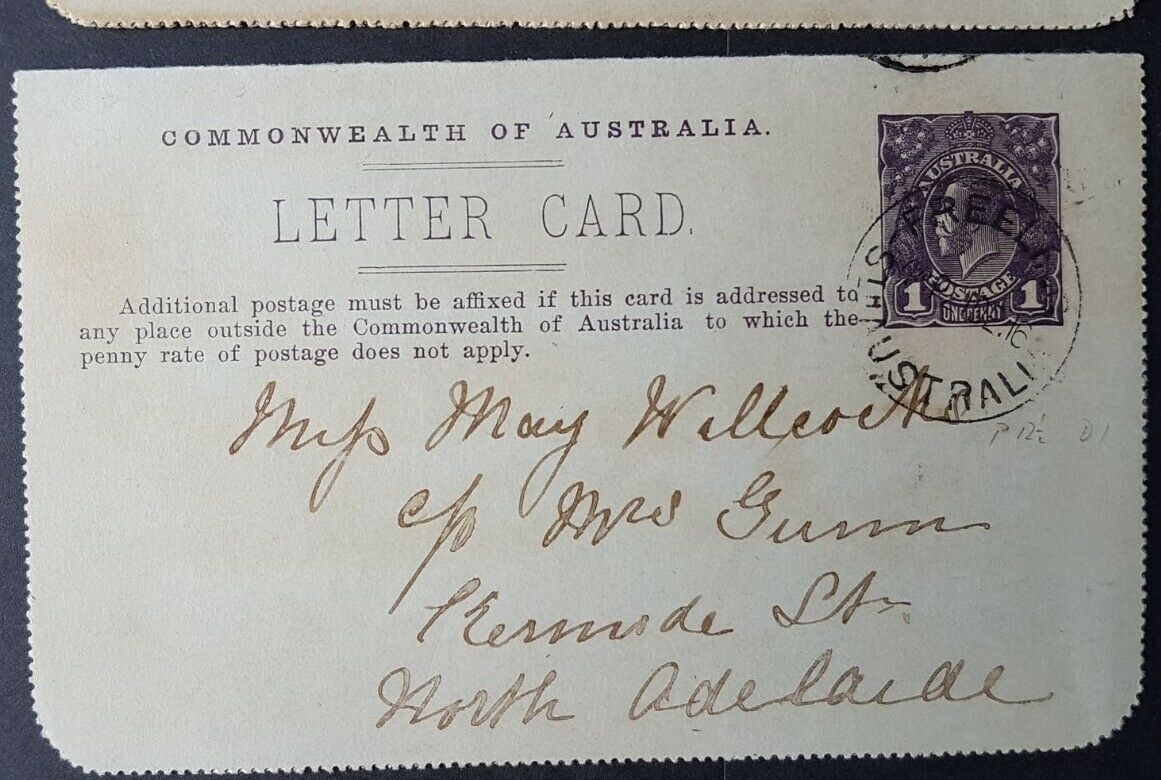 COMMONWEALTH OF AUSTRALIA.
LETTER CARD.
AUSTRALIA
POSTAGE
1 1
ONE PENNY
STH AUSTRALIA
16
Additional postage must be affixed if this card is addressed to
any place outside the Commonwealth of Australia to which the
penny rate of postage does not apply.
Miss May Willcock
c/o Mrs Gunn
Kermode St
North Adelaide
P 12½ D1